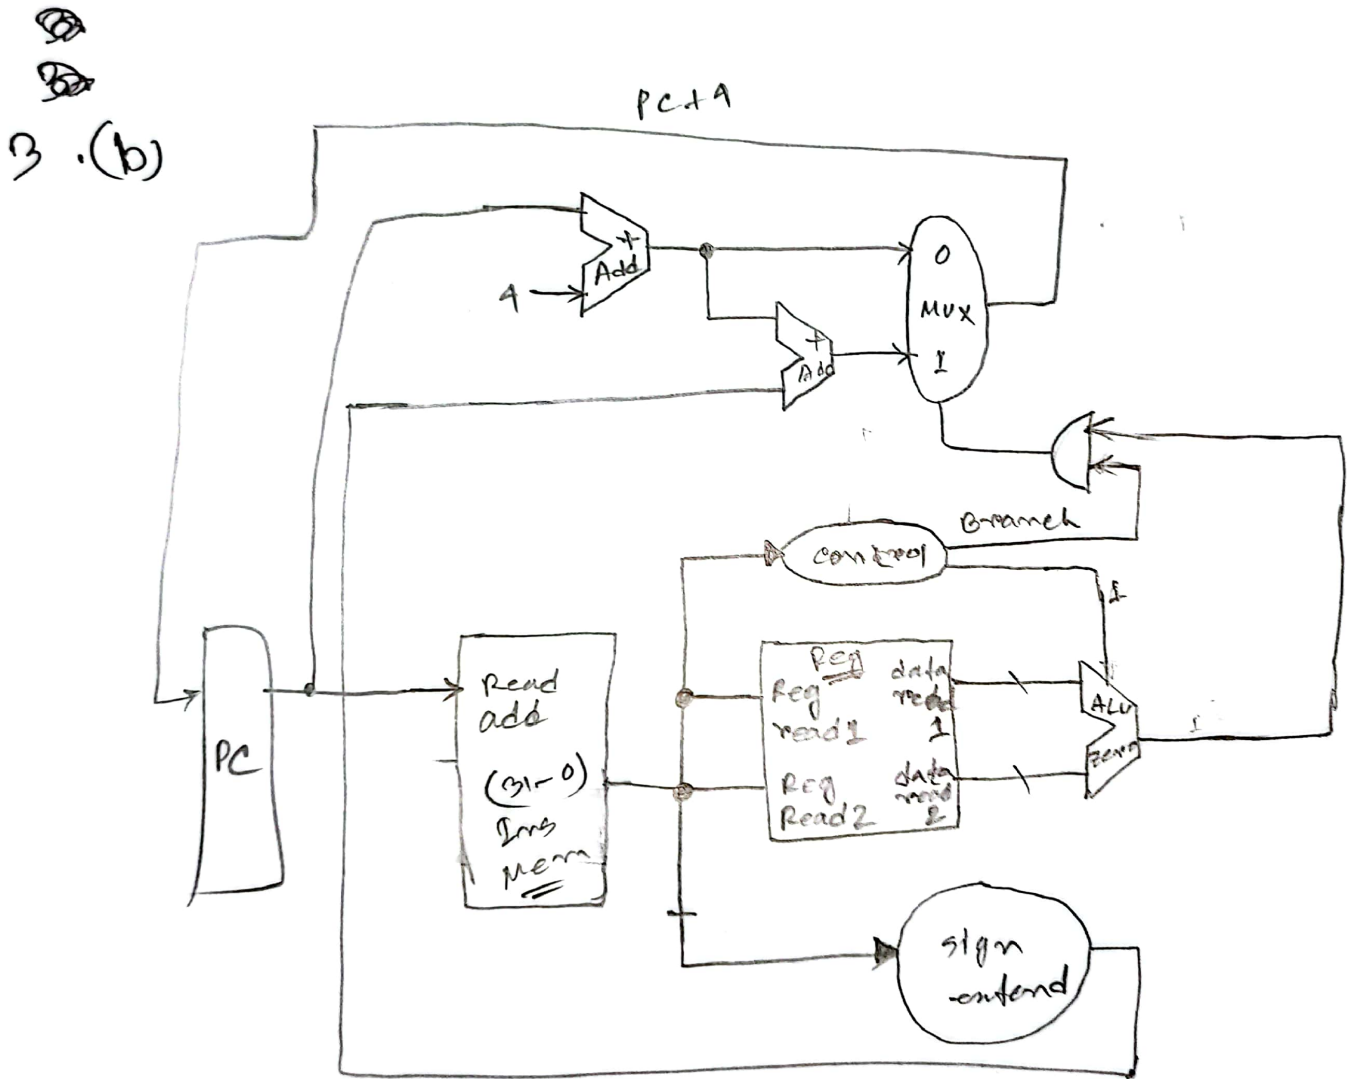 3 .(b)
PC+4
+
Add
4
0
MUX
1
+
Add
Branch
control
1
PC
Read
add
(31-0)
Ins
Mem
Reg
Reg
read1
data
read
1
Reg
Read2
data
read
2
ALU
zero
1
sign
extend